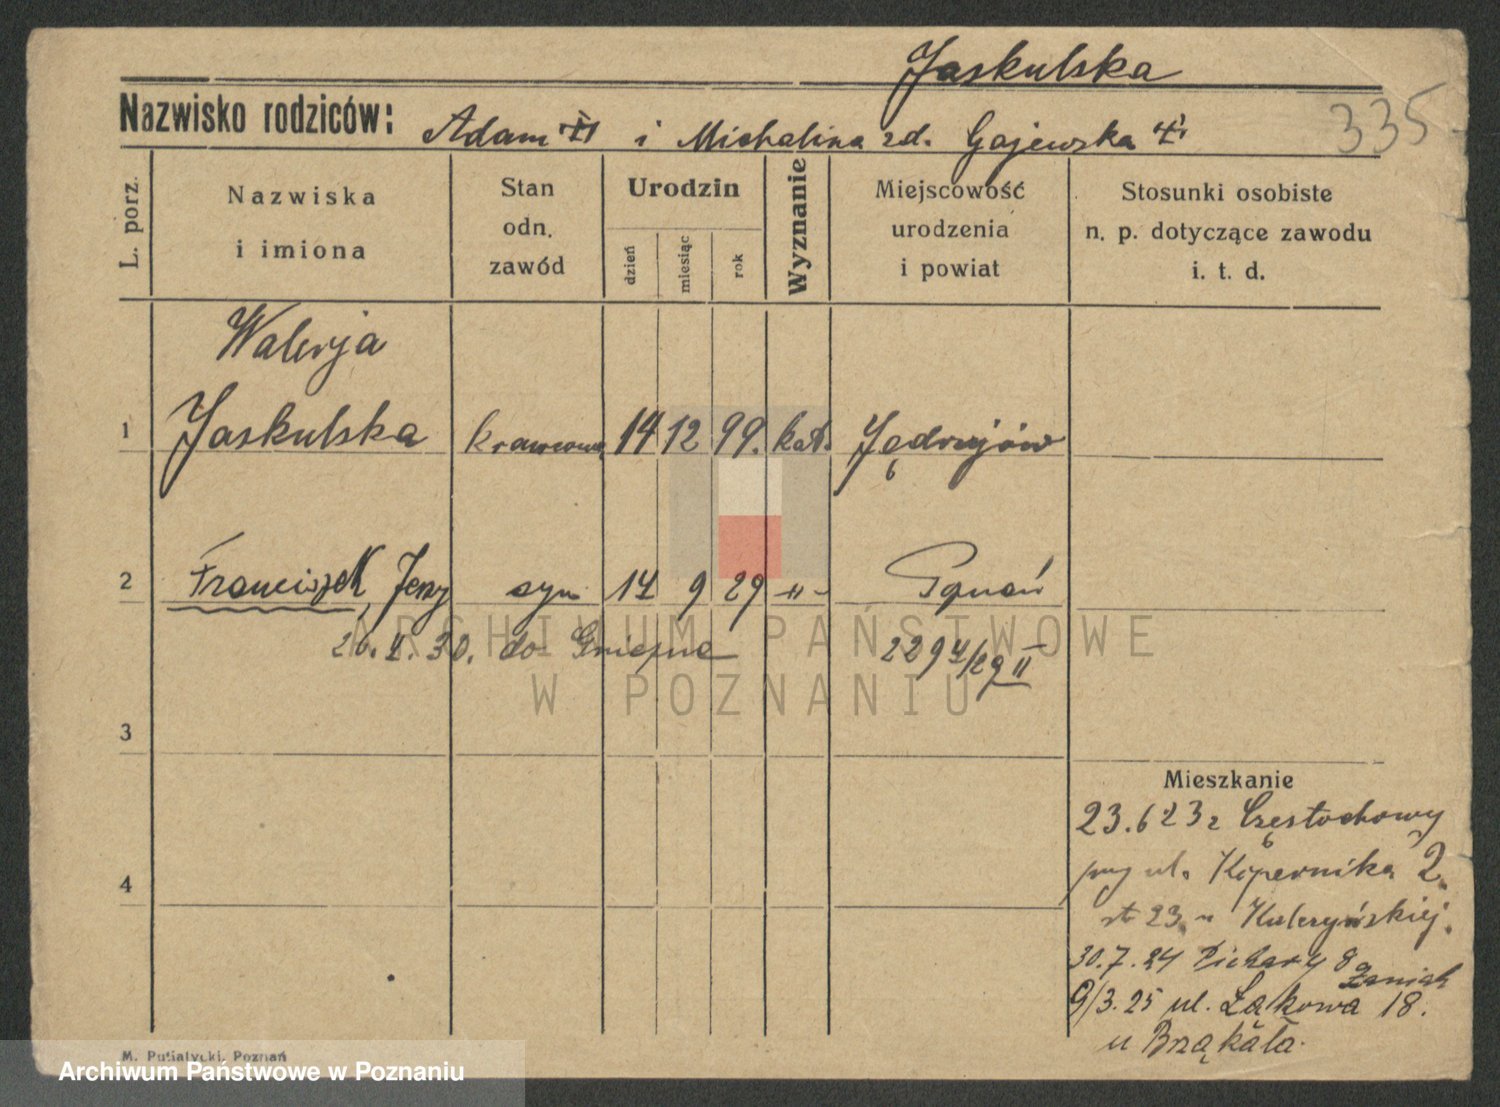 Jaskulska
335
Nazwisko rodziców: Adam i Michalina zd. Gajewska
L. porz.
Nazwiska
i imiona
Stan
odn.
zawód
Urodzin
dzień
miesiąc
rok
Wyznanie
Miejscowość
urodzenia
i powiat
Stosunki osobiste
n. p. dotyczące zawodu
i. t. d.
Walerja
1 Jaskulska krawcowa 14 12 99. kat. Jędrzejów
2 Franciszek, Jerzy syn 14 9 29 -"- Poznań
26.X.30. do Gniezna
3
4
Mieszkanie
23.6 23 z Częstochowy
przy ul. Kopernika 2.
30.7.24 Piekary 8
9/3.25 ul. Łąkowa 18.
u Brząkała.
M. Putiatycki, Poznań
ARCHIWUM PAŃSTWOWE
W POZNANIU
Archiwum Państwowe w Poznaniu